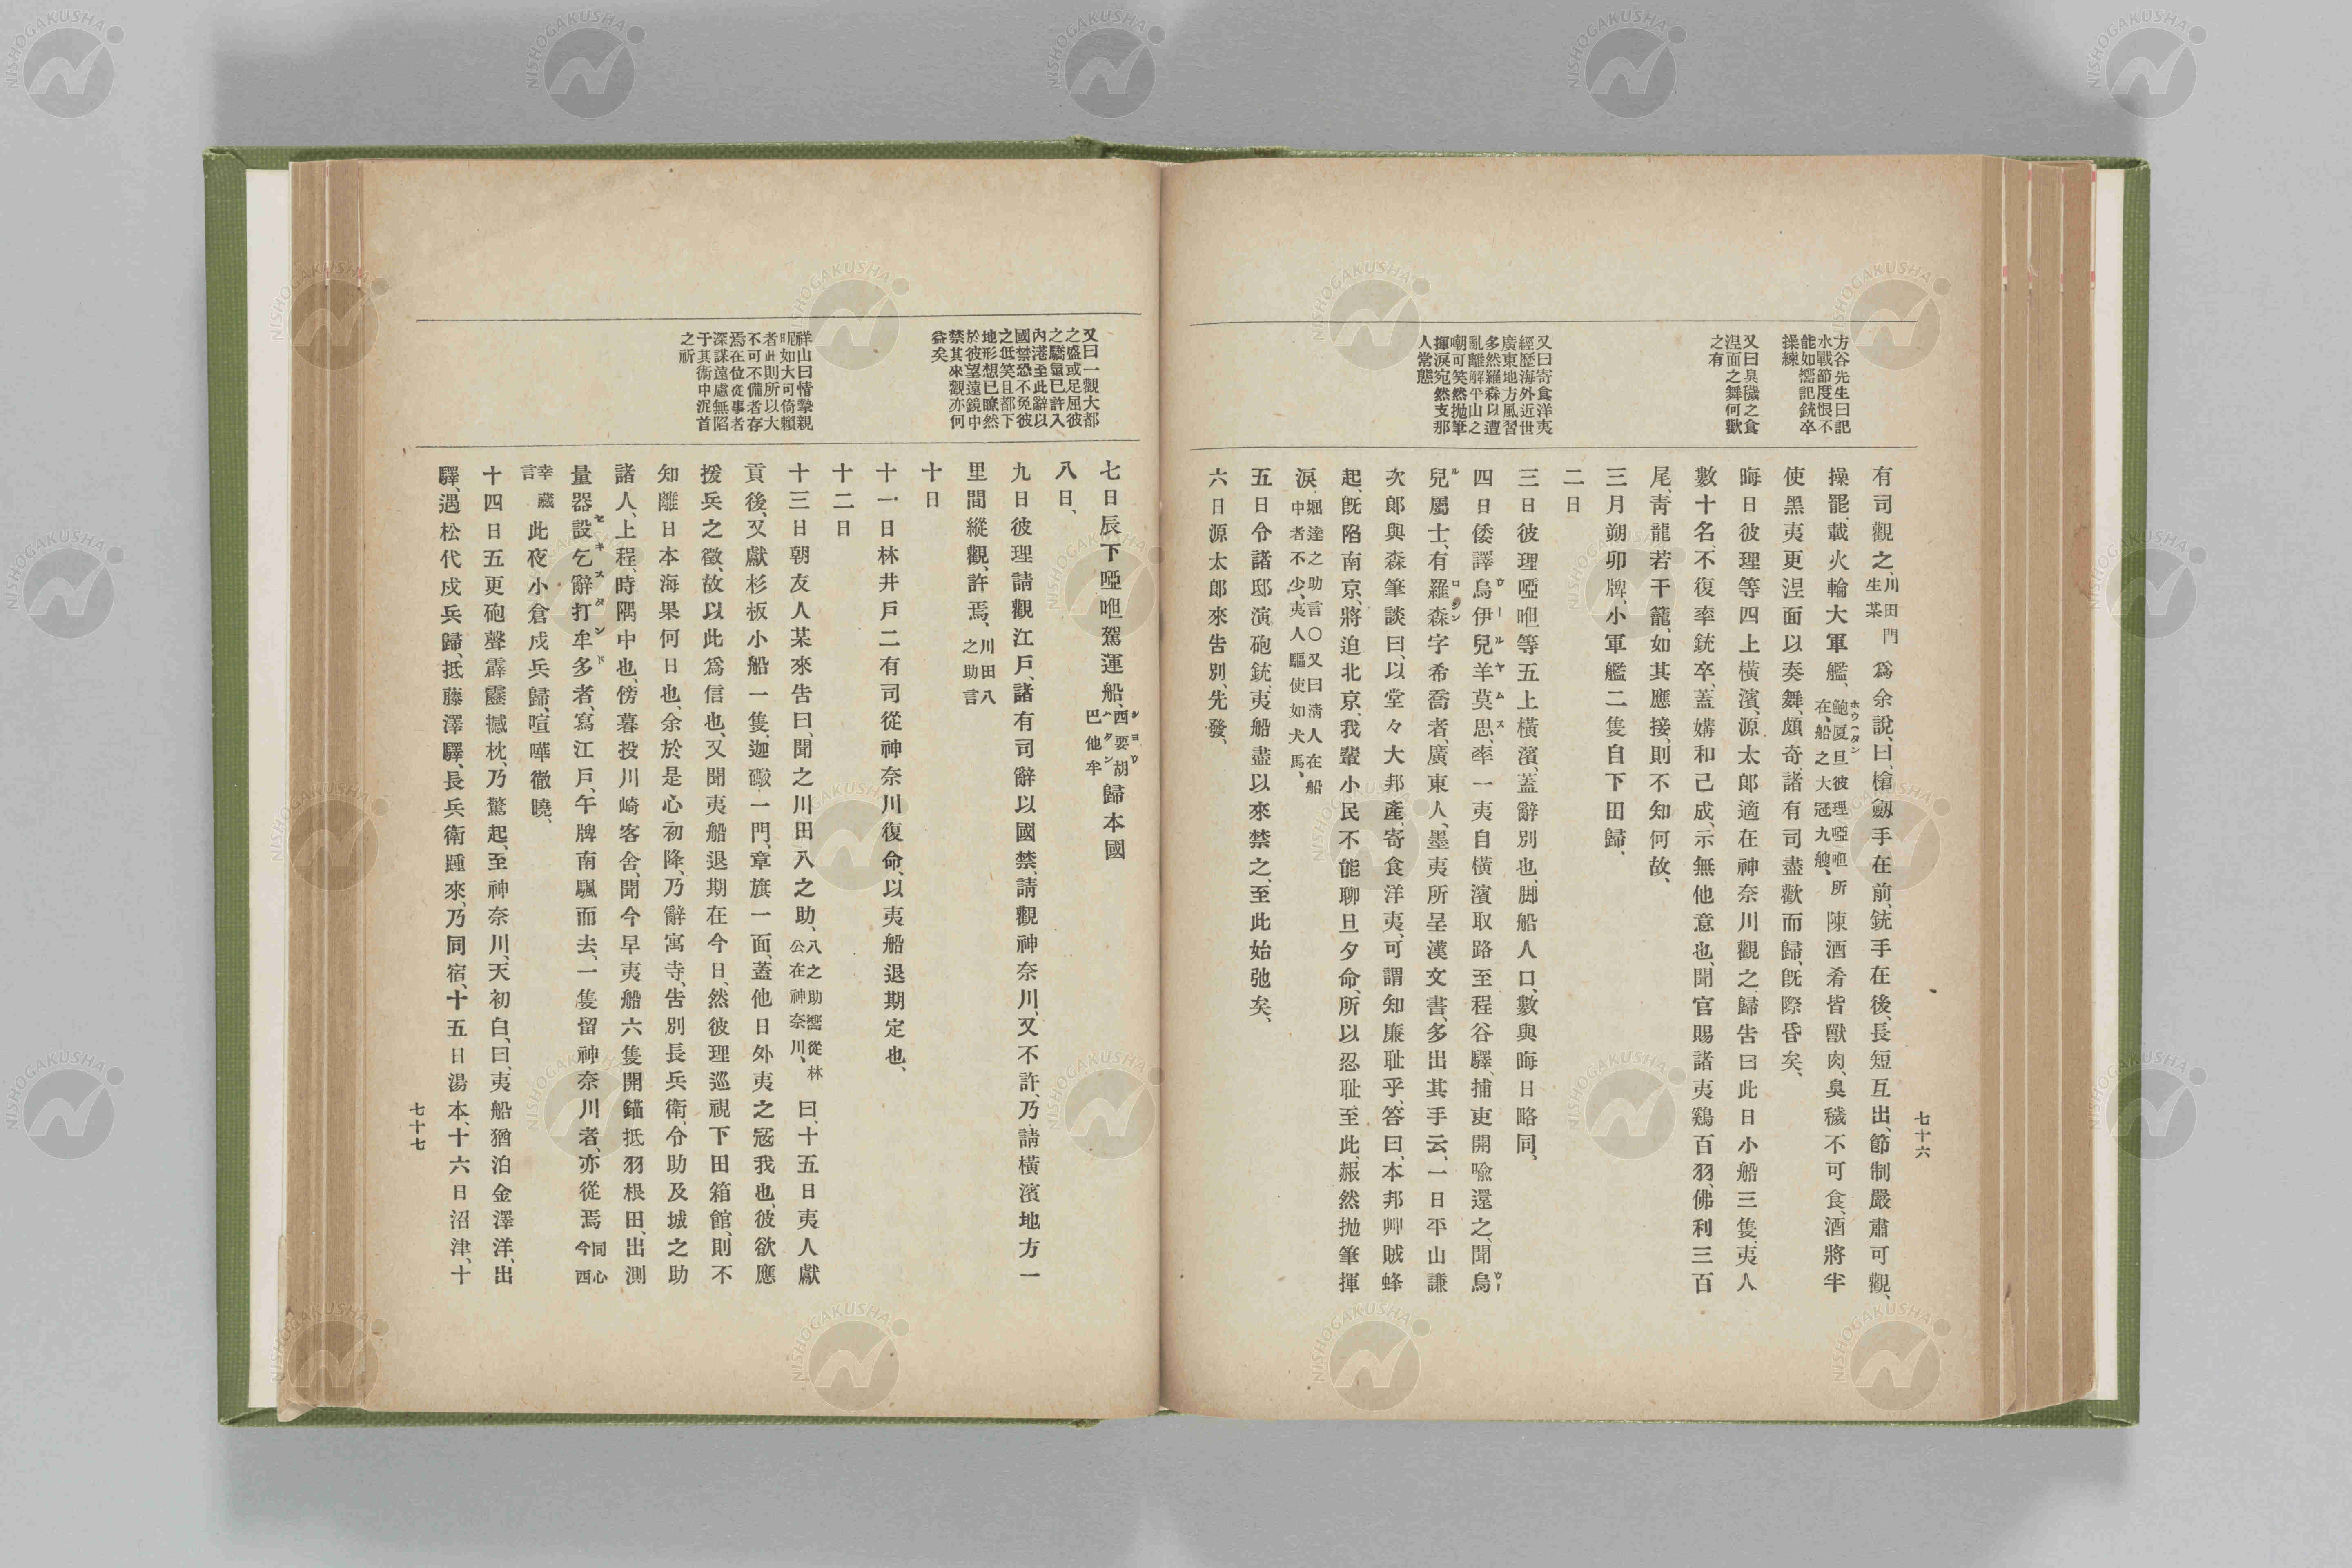 方谷先生曰記
水戰節度恨不
能如嚮記銃卒
操練
又曰臭穢之食
涅面之舞何歡
之有
又曰寄食洋夷
經歷海外近世
廣東地方風習
多然羅森以遭
亂離解平山之
嘲可笑然抛筆
揮淚宛然支那
人常態
有司觀之、川田門生某爲余說、曰、槍劔手在前、銃手在後、長短互出、節制嚴肅可觀、
操罷、載火輪大軍艦、鮑厦旦彼理啞咀所在、船之大冠九艘、陳酒肴皆獸肉、臭穢不可食、酒將半
ホウハタン
使黑夷更涅面以奏舞、頗奇、諸有司盡歡而歸、旣際昏矣、
晦日彼理等四上橫濱、源太郎適在神奈川觀之、歸告曰此日小船三隻、夷人
數十名、不復率銃卒、蓋媾和已成、示無他意也、聞官賜諸夷鷄百羽、佛利三百
尾、靑龍若干籠、如其應接、則不知何故、
三月朔卯牌、小軍艦二隻自下田歸、
二日
三日彼理啞咀等五上橫濱、蓋辭別也、脚船人口、數與晦日略同、
四日倭譯烏伊兒羊莫思、率一夷自橫濱取路至程谷驛、捕吏開喩還之、聞烏
ウールヤムス
ウー
兒屬士、有羅森字希喬者、廣東人、墨夷所呈漢文書、多出其手云、一日平山謙
ル
ロシン
次郎與森筆談曰、以堂々大邦產、寄食洋夷、可謂知廉耻乎、答曰、本邦艸賊蜂
起、旣陷南京、將迫北京、我輩小民不能聊旦夕命、所以忍耻至此、赧然抛筆揮
淚、堀達之助言〇又曰淸人在船中者不少、夷人驅使如犬馬、
五日令諸邸演砲銃、夷船盡以來禁之、至此始弛矣、
六日源太郎來告別、先發、
七十六
又曰一觀大都
之盛或足屈彼
之驕氣已許入
內港至此辭以
國禁恐不免彼
之低笑且都下
地形想已瞭然
於彼望遠鏡中
禁其來觀亦何
益矣
祥山曰情摯親
昵如大可倚賴
者此則所以大
不可不備者存
焉在位從事者
深謀遠慮無陷
于其術中泥首
之祈
七日辰下啞咀駕運船、西要胡巴他牟歸本國
シヨウハタン
八日、
九日彼理請觀江戶、諸有司辭以國禁、請觀神奈川、又不許、乃請橫濱地方一
里間縱觀、許焉、川田八之助言
十日
十一日林井戶二有司從神奈川復命、以夷船退期定也、
十二日
十三日朝友人某來告曰、聞之川田八之助、八之助嚮從林公在神奈川、曰、十五日夷人獻
貢後、又獻杉板小船一隻、迦礮一門、章旗一面、蓋他日外夷之冦我也、彼欲應
援兵之徵、故以此爲信也、又聞夷船退期在今日、然彼理巡視下田箱館、則不
知離日本海果何日也、余於是心初降、乃辭寓寺、告別長兵衛、令助及城之助
諸人、上程、時隅中也、傍暮投川崎客舍、聞今早夷船六隻開錨抵羽根田、出測
量器設乞辭打牟多者、寫江戶、午牌南颿而去、一隻留神奈川者、亦從焉同心今西
セキスタンド
幸藏言此夜小倉戍兵歸、喧嘩徹曉、
十四日五更砲聲霹靂撼枕、乃驚起、至神奈川、天初白、曰、夷船猶泊金澤洋、出
驛、遇松代戍兵歸、抵藤澤驛、長兵衛踵來、乃同宿、十五日湯本、十六日沼津、十
七十七